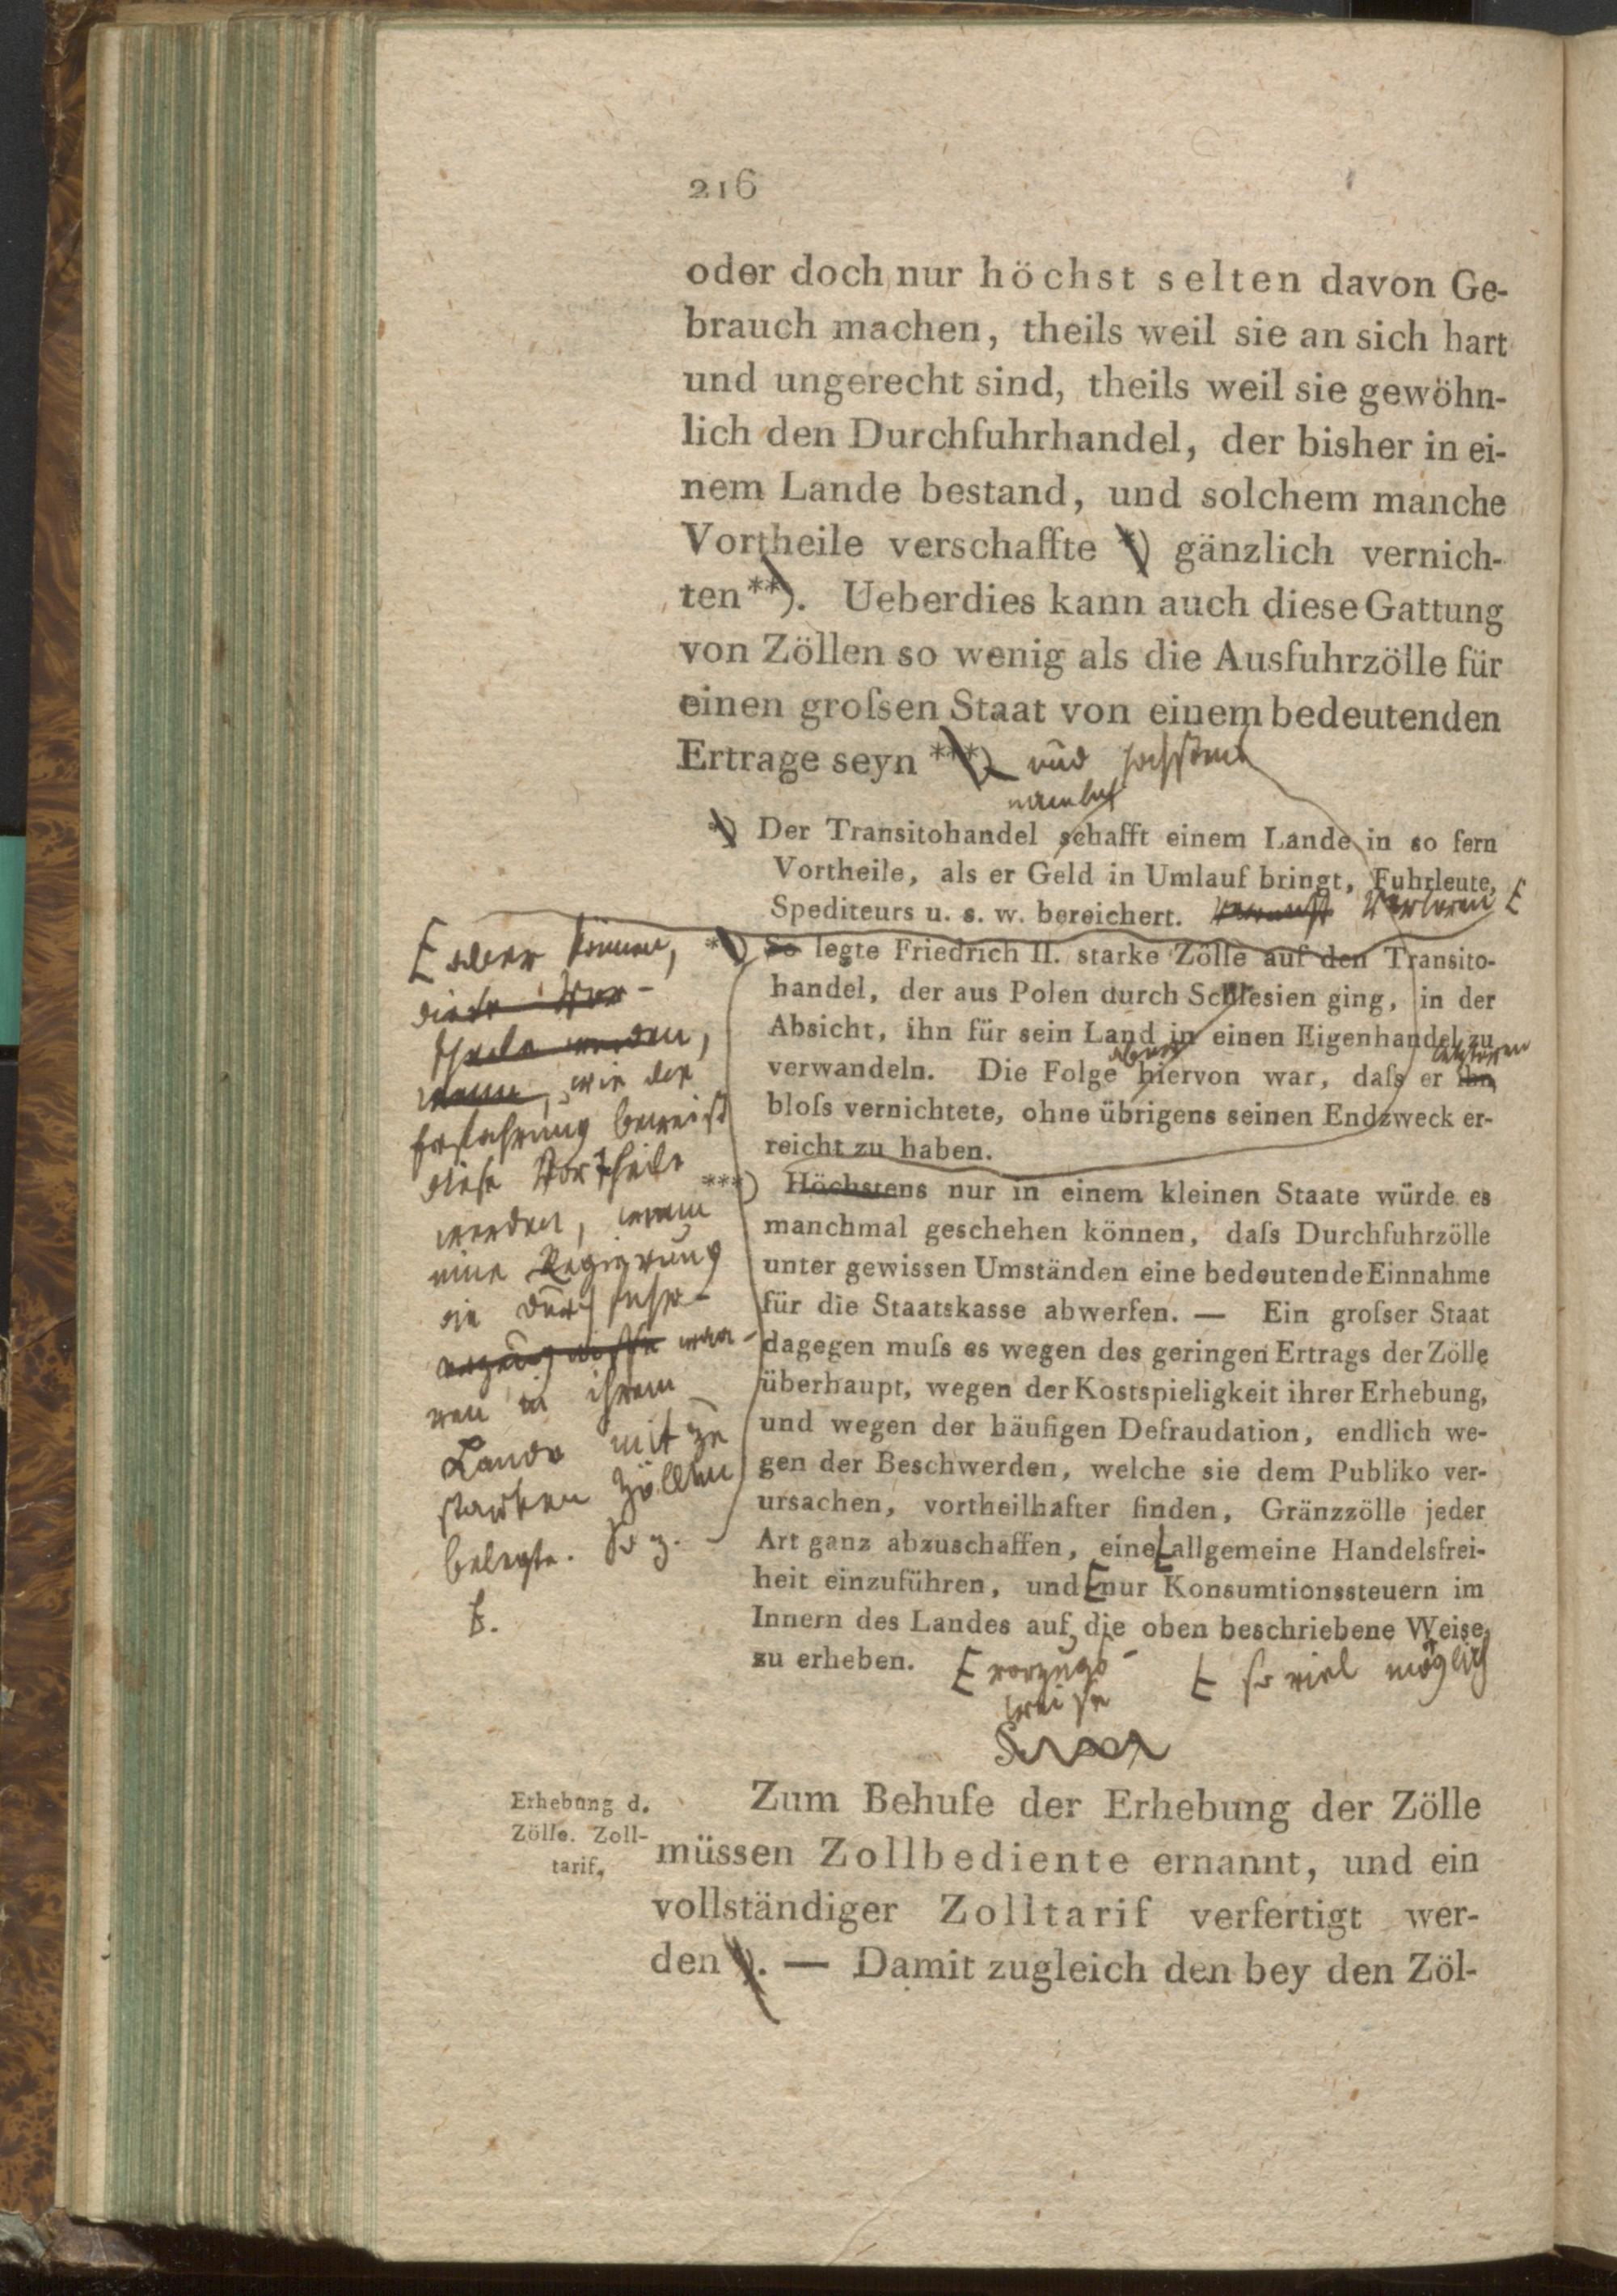 216
oder doch nur höchst selten davon Ge-
brauch machen, theils weil sie an sich hart
und ungerecht sind, theils weil sie gewöhn-
lich den Durchfuhrhandel, der bisher in ei-
nem Lande bestand, und solchem manche
Vortheile verschaffte *) gänzlich vernich-
ten **). Ueberdies kann auch diese Gattung
von Zöllen so wenig als die Ausfuhrzölle für
einen groſsen Staat von einem bedeutenden
Ertrage seyn ***) und höchstens
nämlich
*) Der Transitohandel schafft einem Lande in so fern
Vortheile, als er Geld in Umlauf bringt, Fuhrleute,
Spediteurs u. s. w. bereichert. Verloren
**) So legte Friedrich II. starke Zölle auf den Transito-
handel, der aus Polen durch Schlesien ging, in der
Absicht, ihn für sein Land in einen Eigenhandel zu
aber letzteren
verwandeln. Die Folge hiervon war, daſs er ihn
bloſs vernichtete, ohne übrigens seinen Endzweck er-
reicht zu haben.
***) Höchstens nur in einem kleinen Staate würde es
manchmal geschehen können, daſs Durchfuhrzölle
unter gewissen Umständen eine bedeutende Einnahme
für die Staatskasse abwerfen. — Ein groſser Staat
dagegen muſs es wegen des geringen Ertrags der Zölle
überhaupt, wegen der Kostspieligkeit ihrer Erhebung,
und wegen der häufigen Defraudation, endlich we-
gen der Beschwerden, welche sie dem Publiko ver-
ursachen, vortheilhafter finden, Gränzzölle jeder
Art ganz abzuschaffen, eine allgemeine Handelsfrei-
heit einzuführen, und nur Konsumtionssteuern im
Innern des Landes auf die oben beschriebene Weise
zu erheben.
vorzugs-
weise
so viel möglich
können,
diese Vor-
theile werden,
wenn, wie die
Erfahrung beweist
diese Vortheile
werden, wenn
eine Regierung
die Durchfuhr-
waa-
ren in ihrem
Lande mit zu
starken Zöllen
belegte. So z.
B.
Erhebung d.
Zölle. Zoll-
tarif.
Zum Behufe der Erhebung der Zölle
müssen Zollbediente ernannt, und ein
vollständiger Zolltarif verfertigt wer-
den *). — Damit zugleich den bey den Zöl-